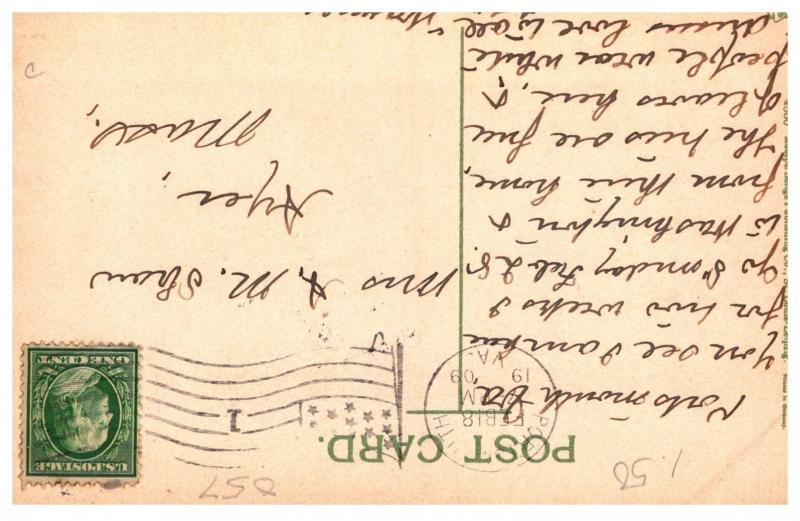 POST CARD.
1.50
057
U.S. POSTAGE
ONE CENT
1
FEB 18
19 '09
VA.
Portsmouth Va
You see I am here
for two weeks I
go Sunday Feb 28.
to Washington &
from there home,
The trees are fine
& leaves here, &
people wear white
dresses love to all
Mrs A. M. Shaw
Ayer,
Mass,